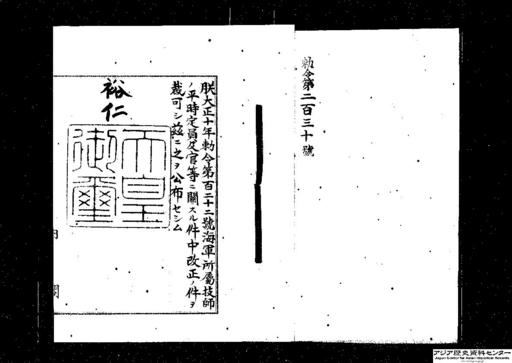 勅令第二百三十號
朕大正十年勅令第百二十二號海軍所屬技師
ノ平時定員及官等ニ關スル件中改正ノ件ヲ
裁可シ茲ニ之ヲ公布セシム
裕仁
天皇御璽
アジア歴史資料センター
Japan Center for Asian Historical Records